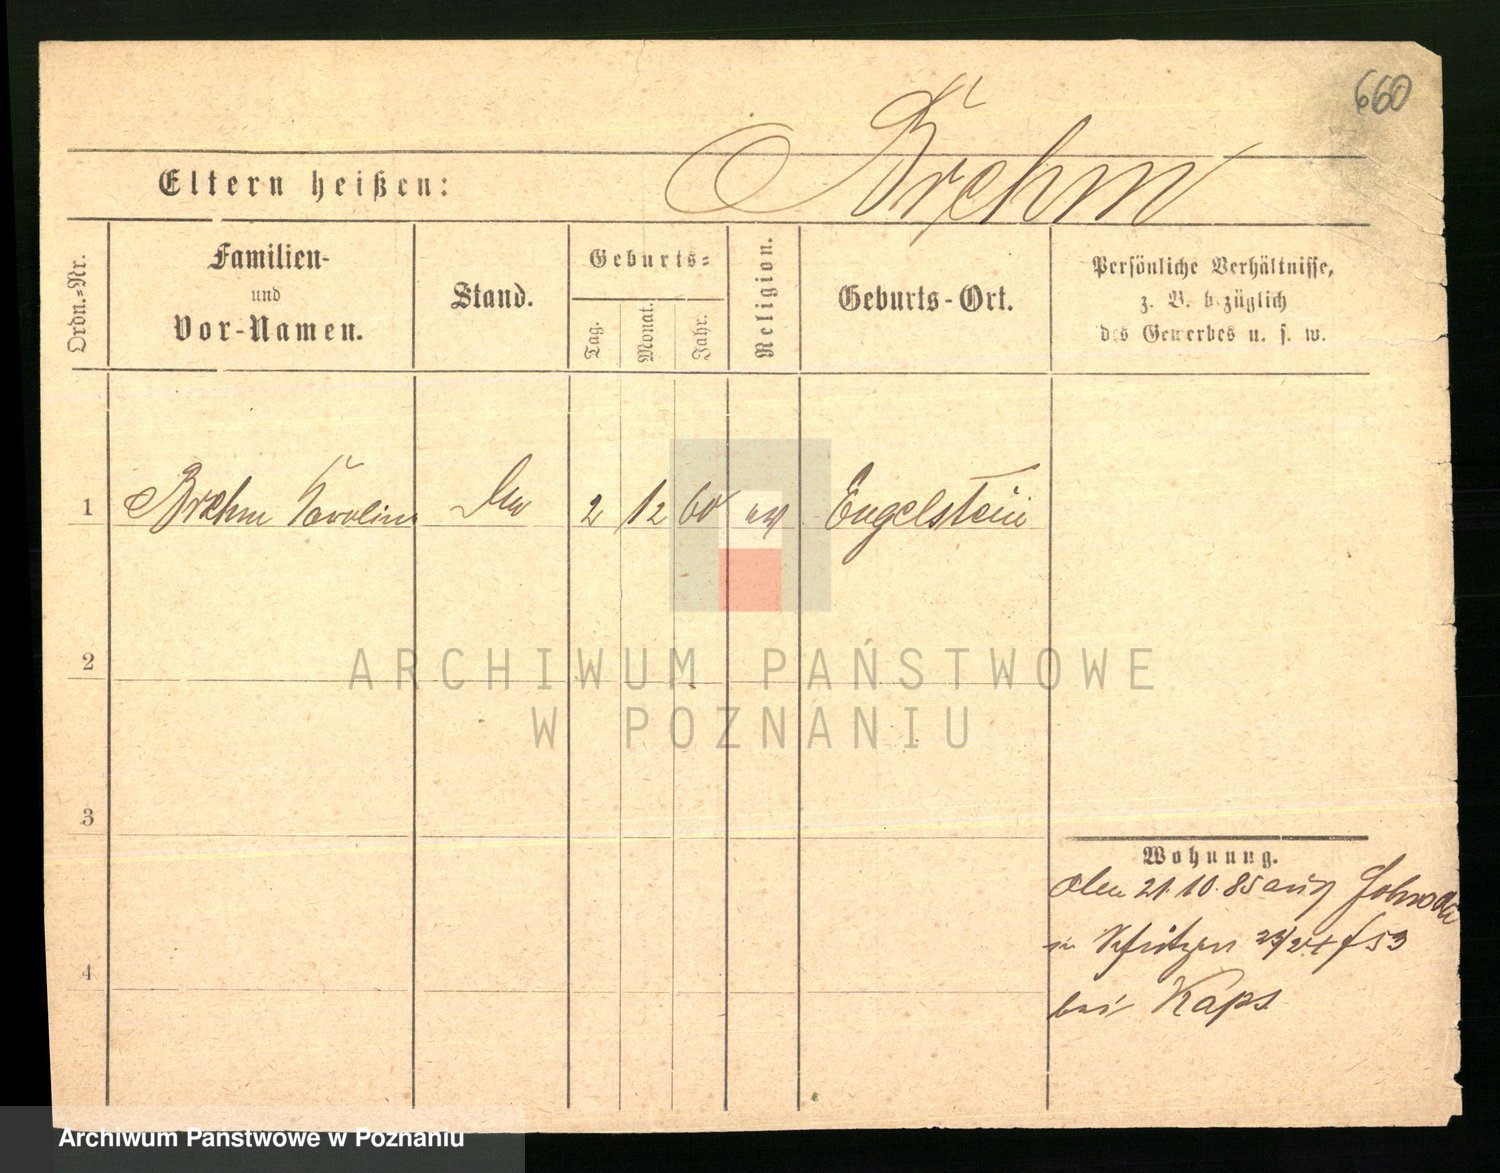 660
Brehm
Eltern heißen:
Ordn.-Nr.
Familien-
und
Vor-Namen.
Stand.
Geburts-
Tag.
Monat.
Jahr.
Religion.
Geburts-Ort.
Persönliche Verhältnisse,
z. B. bezüglich
des Gewerbes u. s. w.
1 Brehm Karolina 2 12 60 ev Engelstein
2
3
4
Wohnung.
den 21.10.85 aus
23/24 f 53
bei Kaps
ARCHIWUM PAŃSTWOWE
W POZNANIU
Archiwum Państwowe w Poznaniu